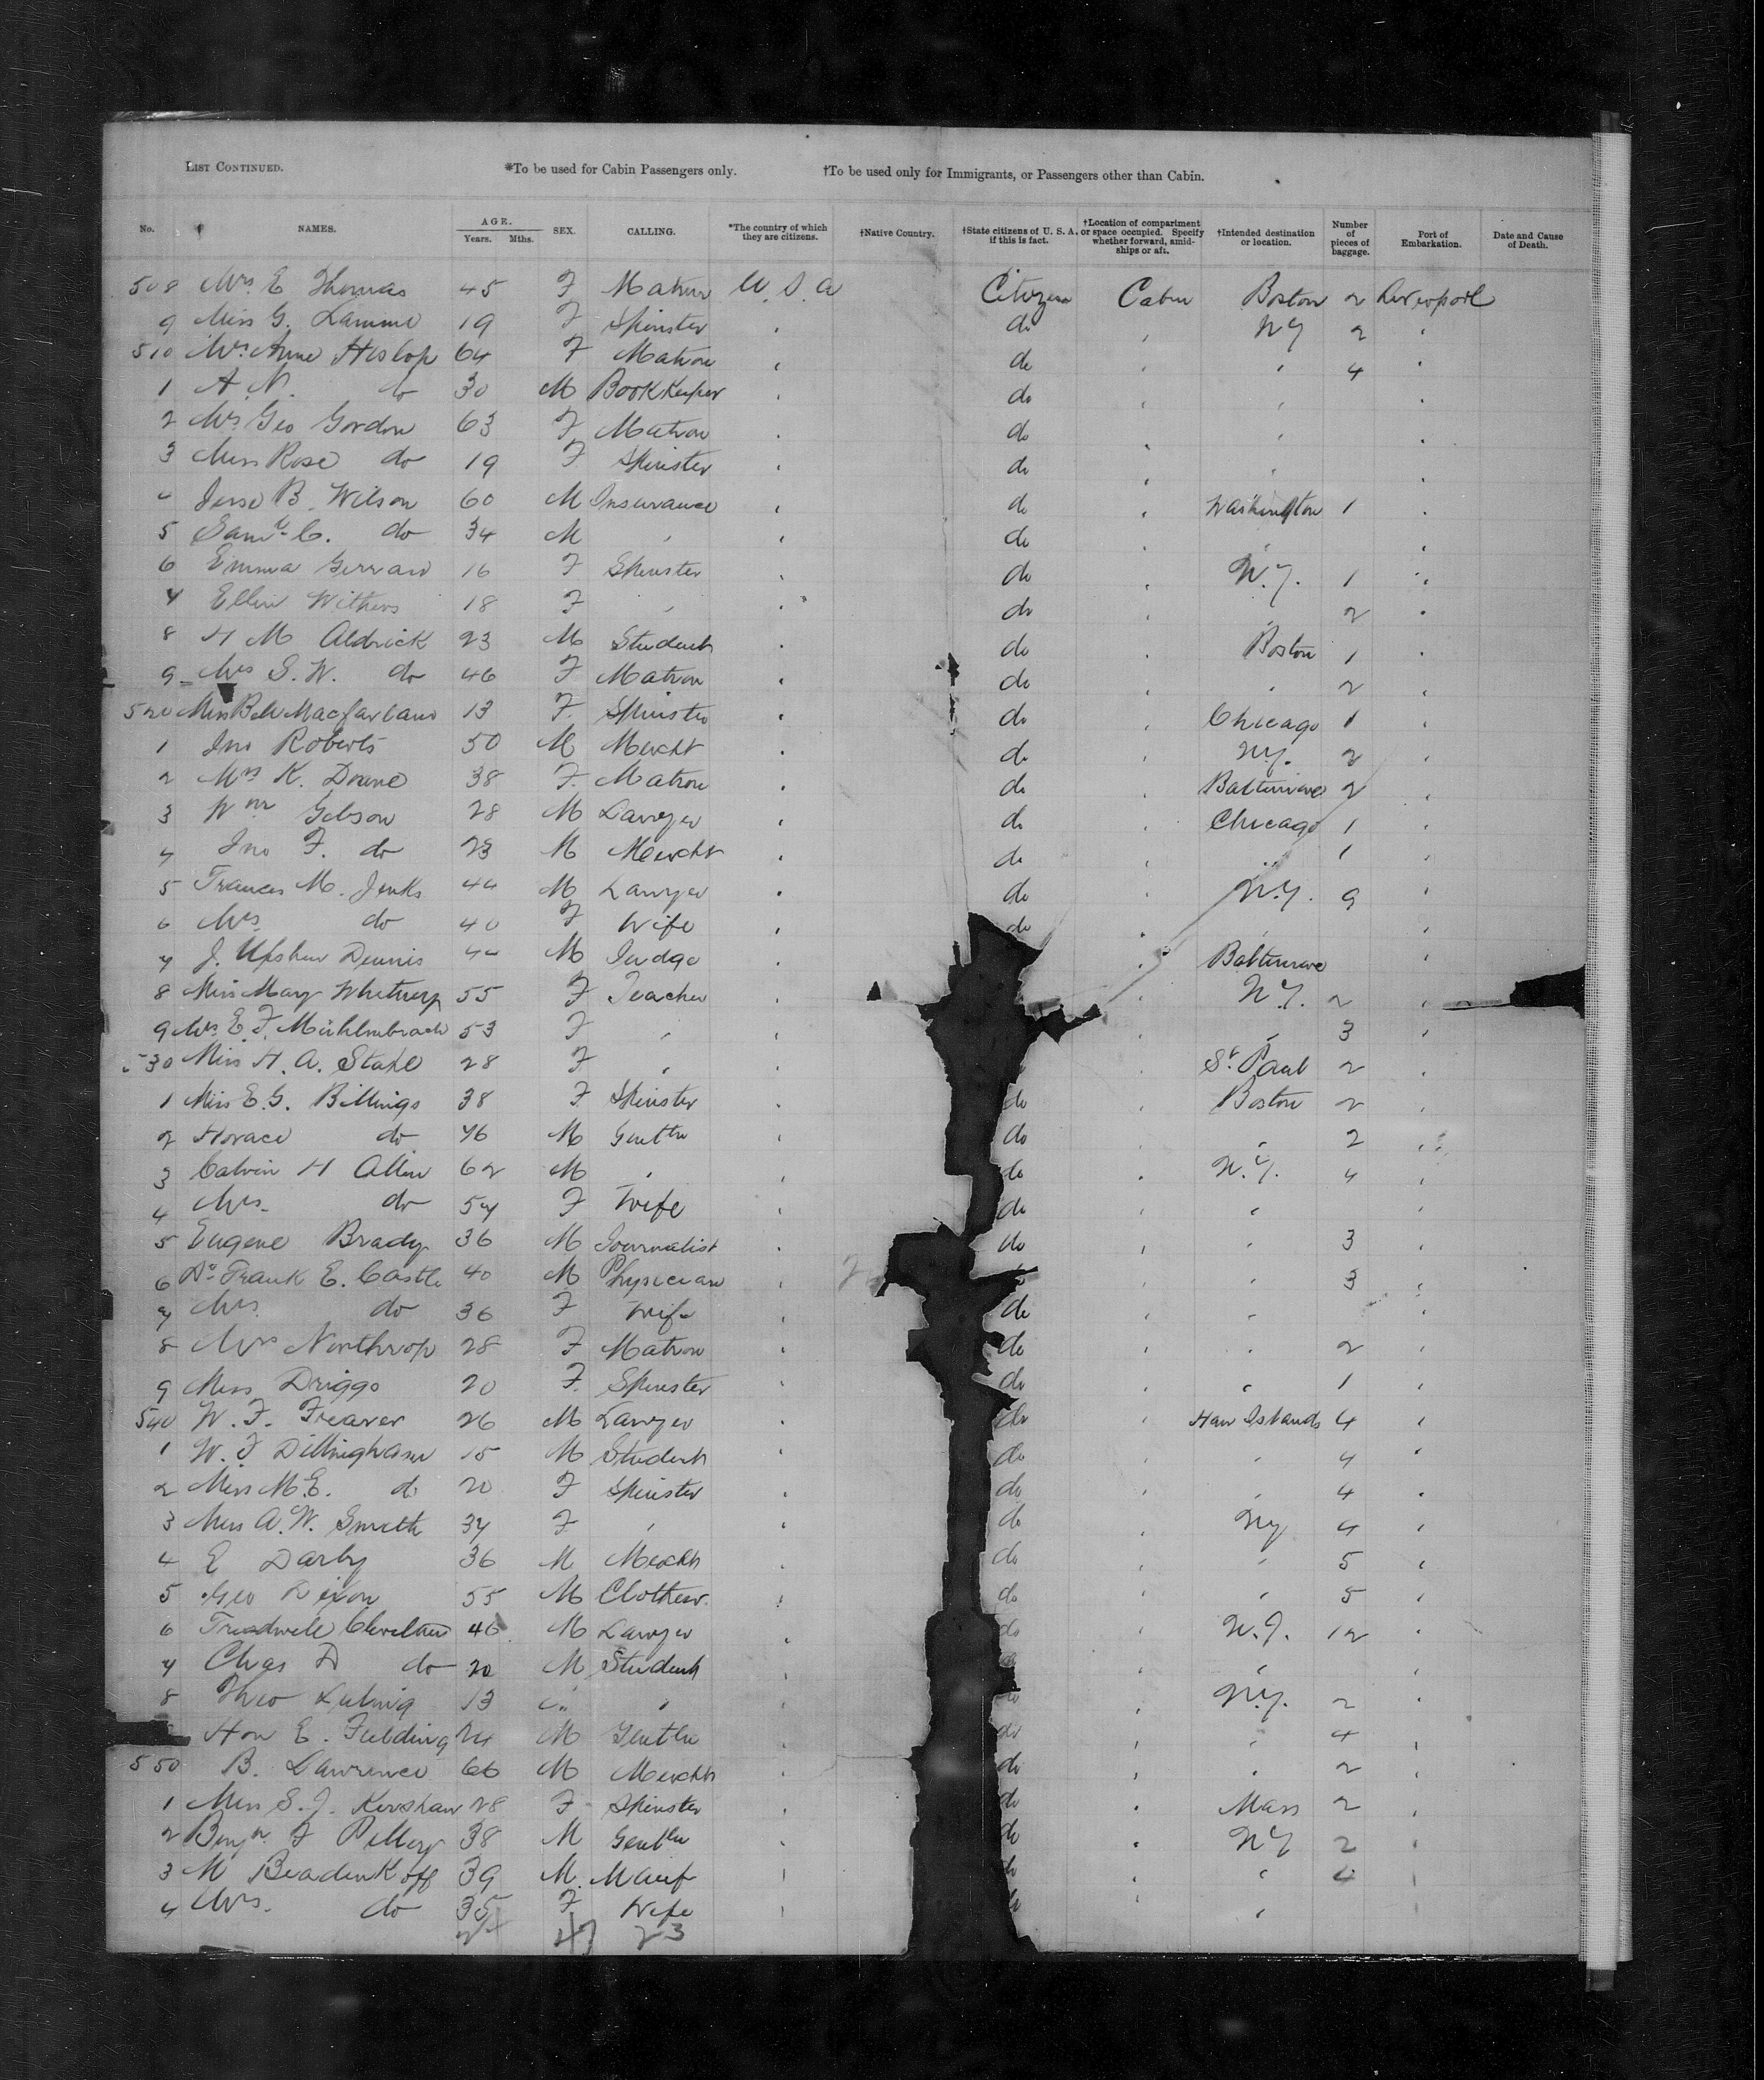 LIST CONTINUED. *To be used for Cabin Passengers only. †To be used only for Immigrants, or Passengers other than Cabin.
No. NAMES. AGE. Years. Mths. SEX. CALLING. *The country of which they are citizens. †Native Country. †State citizens of U. S. A. if this is fact. †Location of compartment or space occupied. Specify whether forward, amidships or aft. †Intended destination or location. Number of pieces of baggage. Port of Embarkation. Date and Cause of Death.
508 Mrs E Thomas 45 F Matron U.S.A Citizen Cabin Boston 2 Liverpool
9 Miss G. Lamme 19 F Spinster " do " NY 2 "
510 Mrs Anne Hislop 64 F Matron " do " " 4 "
1 A. N. do 30 M Bookkeeper " do " " "
2 Mrs Geo Gordon 63 F Matron " do " " "
3 Miss Rose do 19 F Spinster " do " " "
4 Jesse B. Wilson 60 M Insurance " do " Washington 1 "
5 Saml C. do 34 M " " do " " "
6 Emma Gerrard 16 F Spinster " do " N.Y. 1 "
7 Ellen Withers 18 F " " do 2 "
8 H M Aldrick 23 M Student " do " Boston 1 "
9 Mrs S. W. do 46 F Matron " do " " 2 "
520 Miss Bell Macfarland 13 F. Spinster " do " Chicago 1 "
1 Jno Roberts 50 M Mercht " do " N.Y. 2 "
2 Mrs K. Doane 38 F. Matron " do " Baltimore 2 "
3 Wm Gibson 28 M Lawyer " do " Chicago 1 "
4 Jno F. do 23 M Mercht " do " " 1 "
5 Frances M. Jenks 44 M Lawyer " do N.Y. 9 "
6 Mrs. do 40 F Wife " do " "
7 J. Upshur Dennis 44 M Judge " " Baltimore "
8 Miss Mary 55 F Teacher " " N.Y. 2 "
9 Mrs E. F. Mühlmbrach 53 F " " " " 3 "
530 Miss H. A. Stahl 28 F " " " St. Paul 2 "
1 Miss E. G. Billings 38 F Spinster " do " Boston 2 "
2 Horace do 76 M Gentln " do " " 2 "
3 Calvin H Allen 62 M " " do " N.Y. 4 "
4 Mrs. do 54 F Wife " do " " "
5 Eugene Brady 36 M Journalist " do " " 3 "
6 Dr Frank E. Castle 40 M Physician " " 3 "
7 Mrs. do 36 F Wife " do " " "
8 Mrs Northrop 28 F Matron " do " " 2 "
9 Miss Driggs 20 F. Spinster " do " " 1 "
540 W. F. Frearer 26 M Lawyer " do " Haw Islands 4 "
1 W. F Dillingham 15 M Student " do " " 4 "
2 Miss M. E. do 20 F Spinster " do " " 4 "
3 Miss A. W. Smith 37 F " " do " NY 4 "
4 E Darby 36 M Mercht " do " " 5 "
5 Geo Dixon 55 M Clothier. " do " " 5 "
6 Treadwell Cleveland 46 M Lawyer " do " N.J. 12 "
7 Chas D do 20 M Student " " " "
8 Theo 13 " " " do " N.Y. 2 "
Hon E. Fielding 24 M Gentln " do " " 4 "
550 B. Lawrence 66 M Mercht " do " " 2 "
1 Miss S. J. Kershaw 28 F Spinster " do " Mass 2 "
2 Benjn. F 38 M Gentln " do " NY 2 "
3 M Beadenkoff 39 M. Manf " do " " "
4 Mrs. do 35 F Wife " " "
47 23